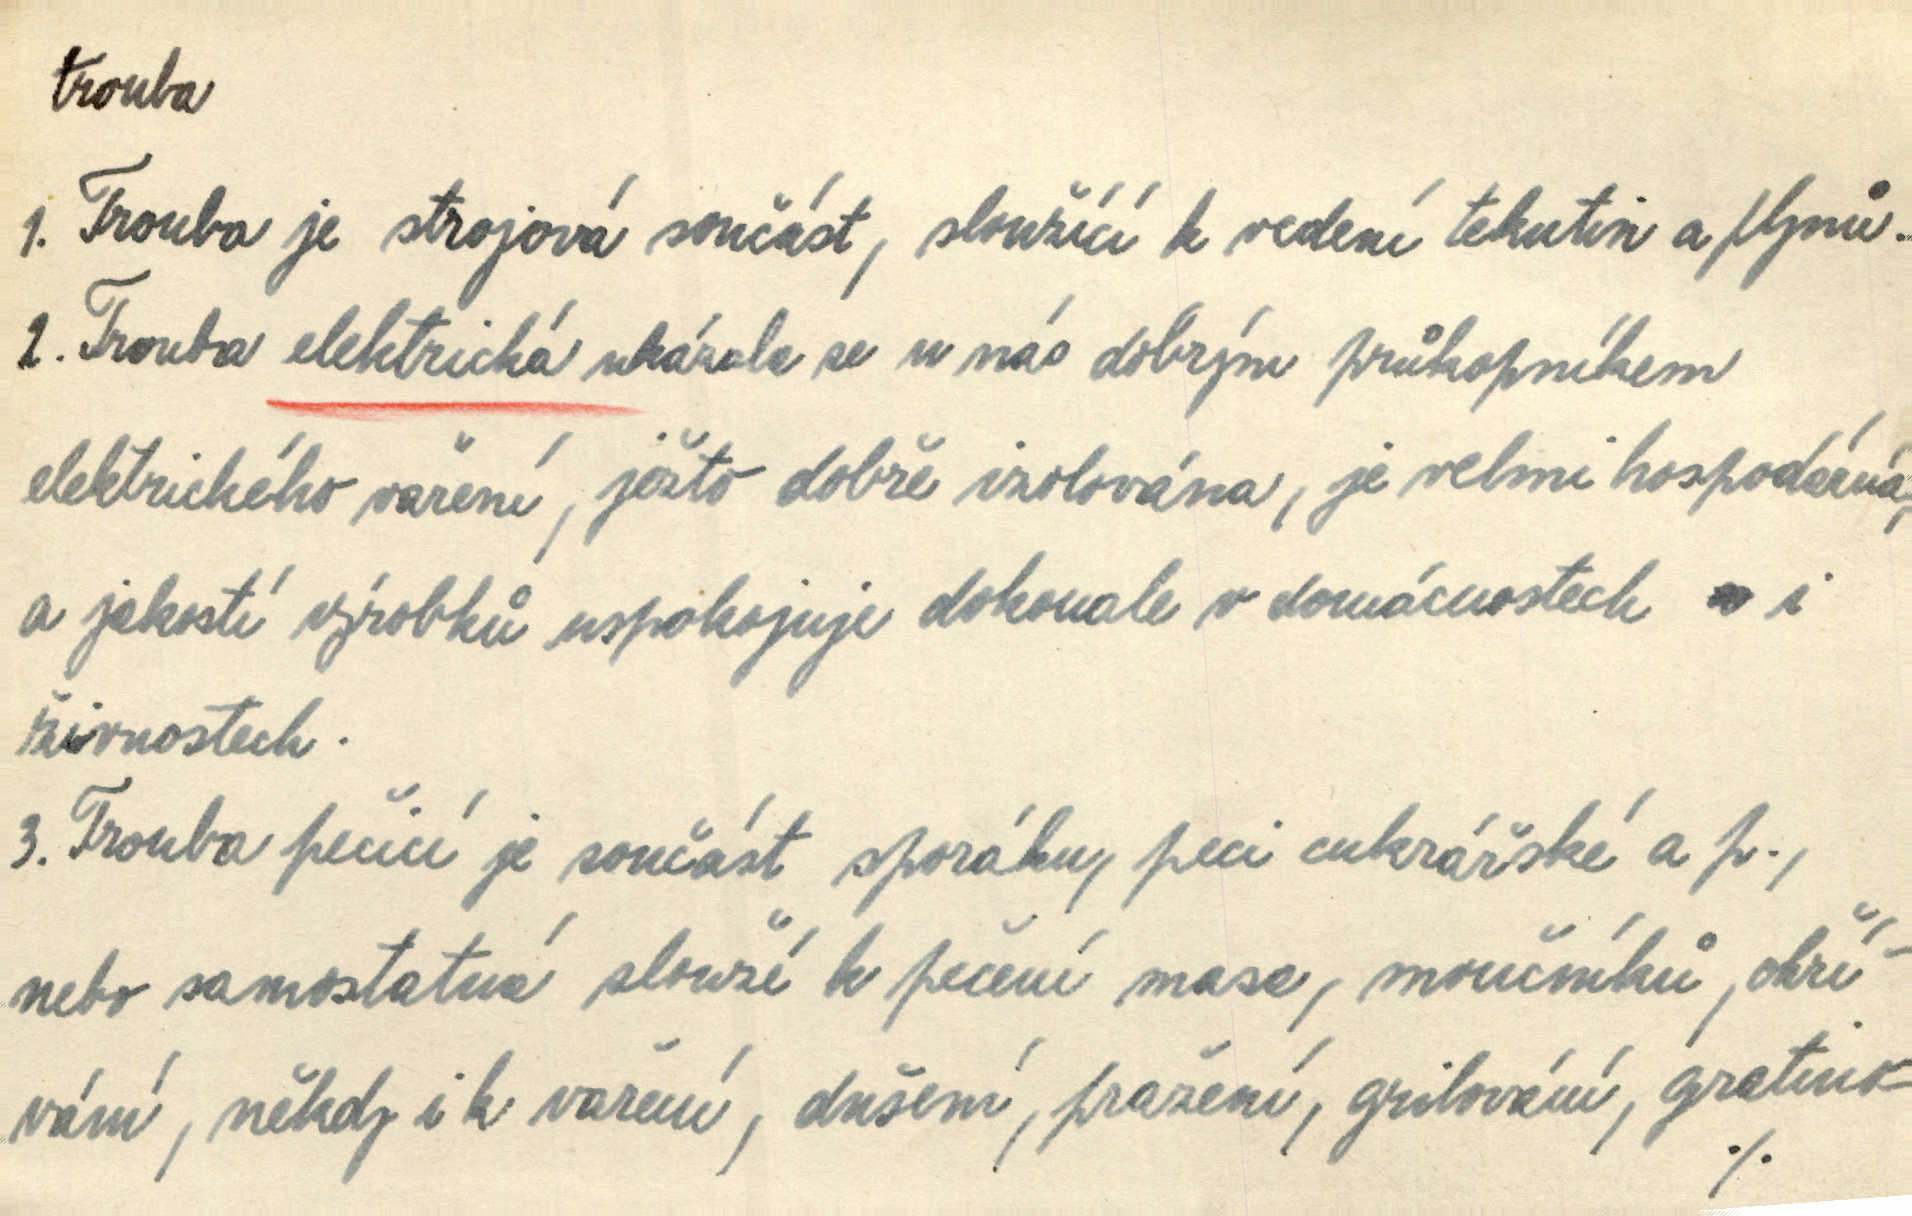 trouba
1. Trouba je strojová součást, sloužící k vedení tekutin a plynů.
2. Trouba elektrická ukázala se u nás dobrým průkopníkem
elektrického vaření, ježto dobře izolována, je velmi hospodárná,
a jakostí výrobků uspokojuje dokonale v domácnostech i
živnostech.
3. Trouba pečící je součást sporáku, peci cukrářské a p.,
nebo samostatná slouží k pečení masa, moučníků, ohří-
vání, někdy i k vaření, dušení, pražení, grilování, gratino-
./.